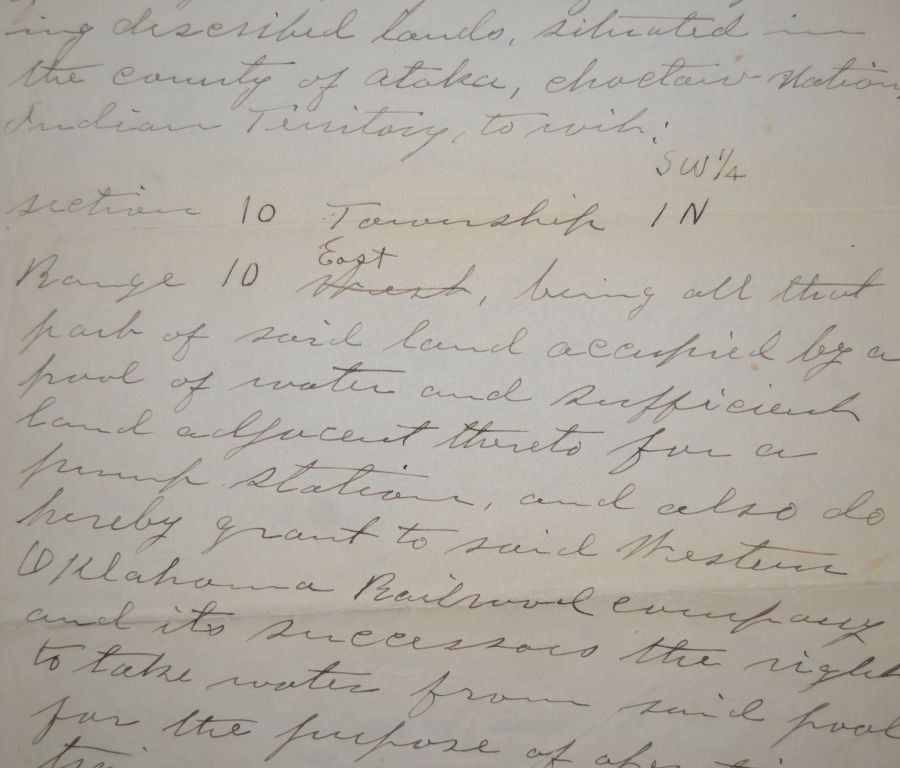 ing described lands, situated in
the county of Atoka, Choctaw Nation,
Indian Territory, to wit:
SW 1/4
section 10 Township 1 N
East
Range 10 West, being all that
part of said land occupied by a
pool of water and sufficient
land adjacent thereto for a
pump station, and also do
hereby grant to said Western
Oklahoma Railroad company
and its successors the right
to take water from said pool
for the purpose of